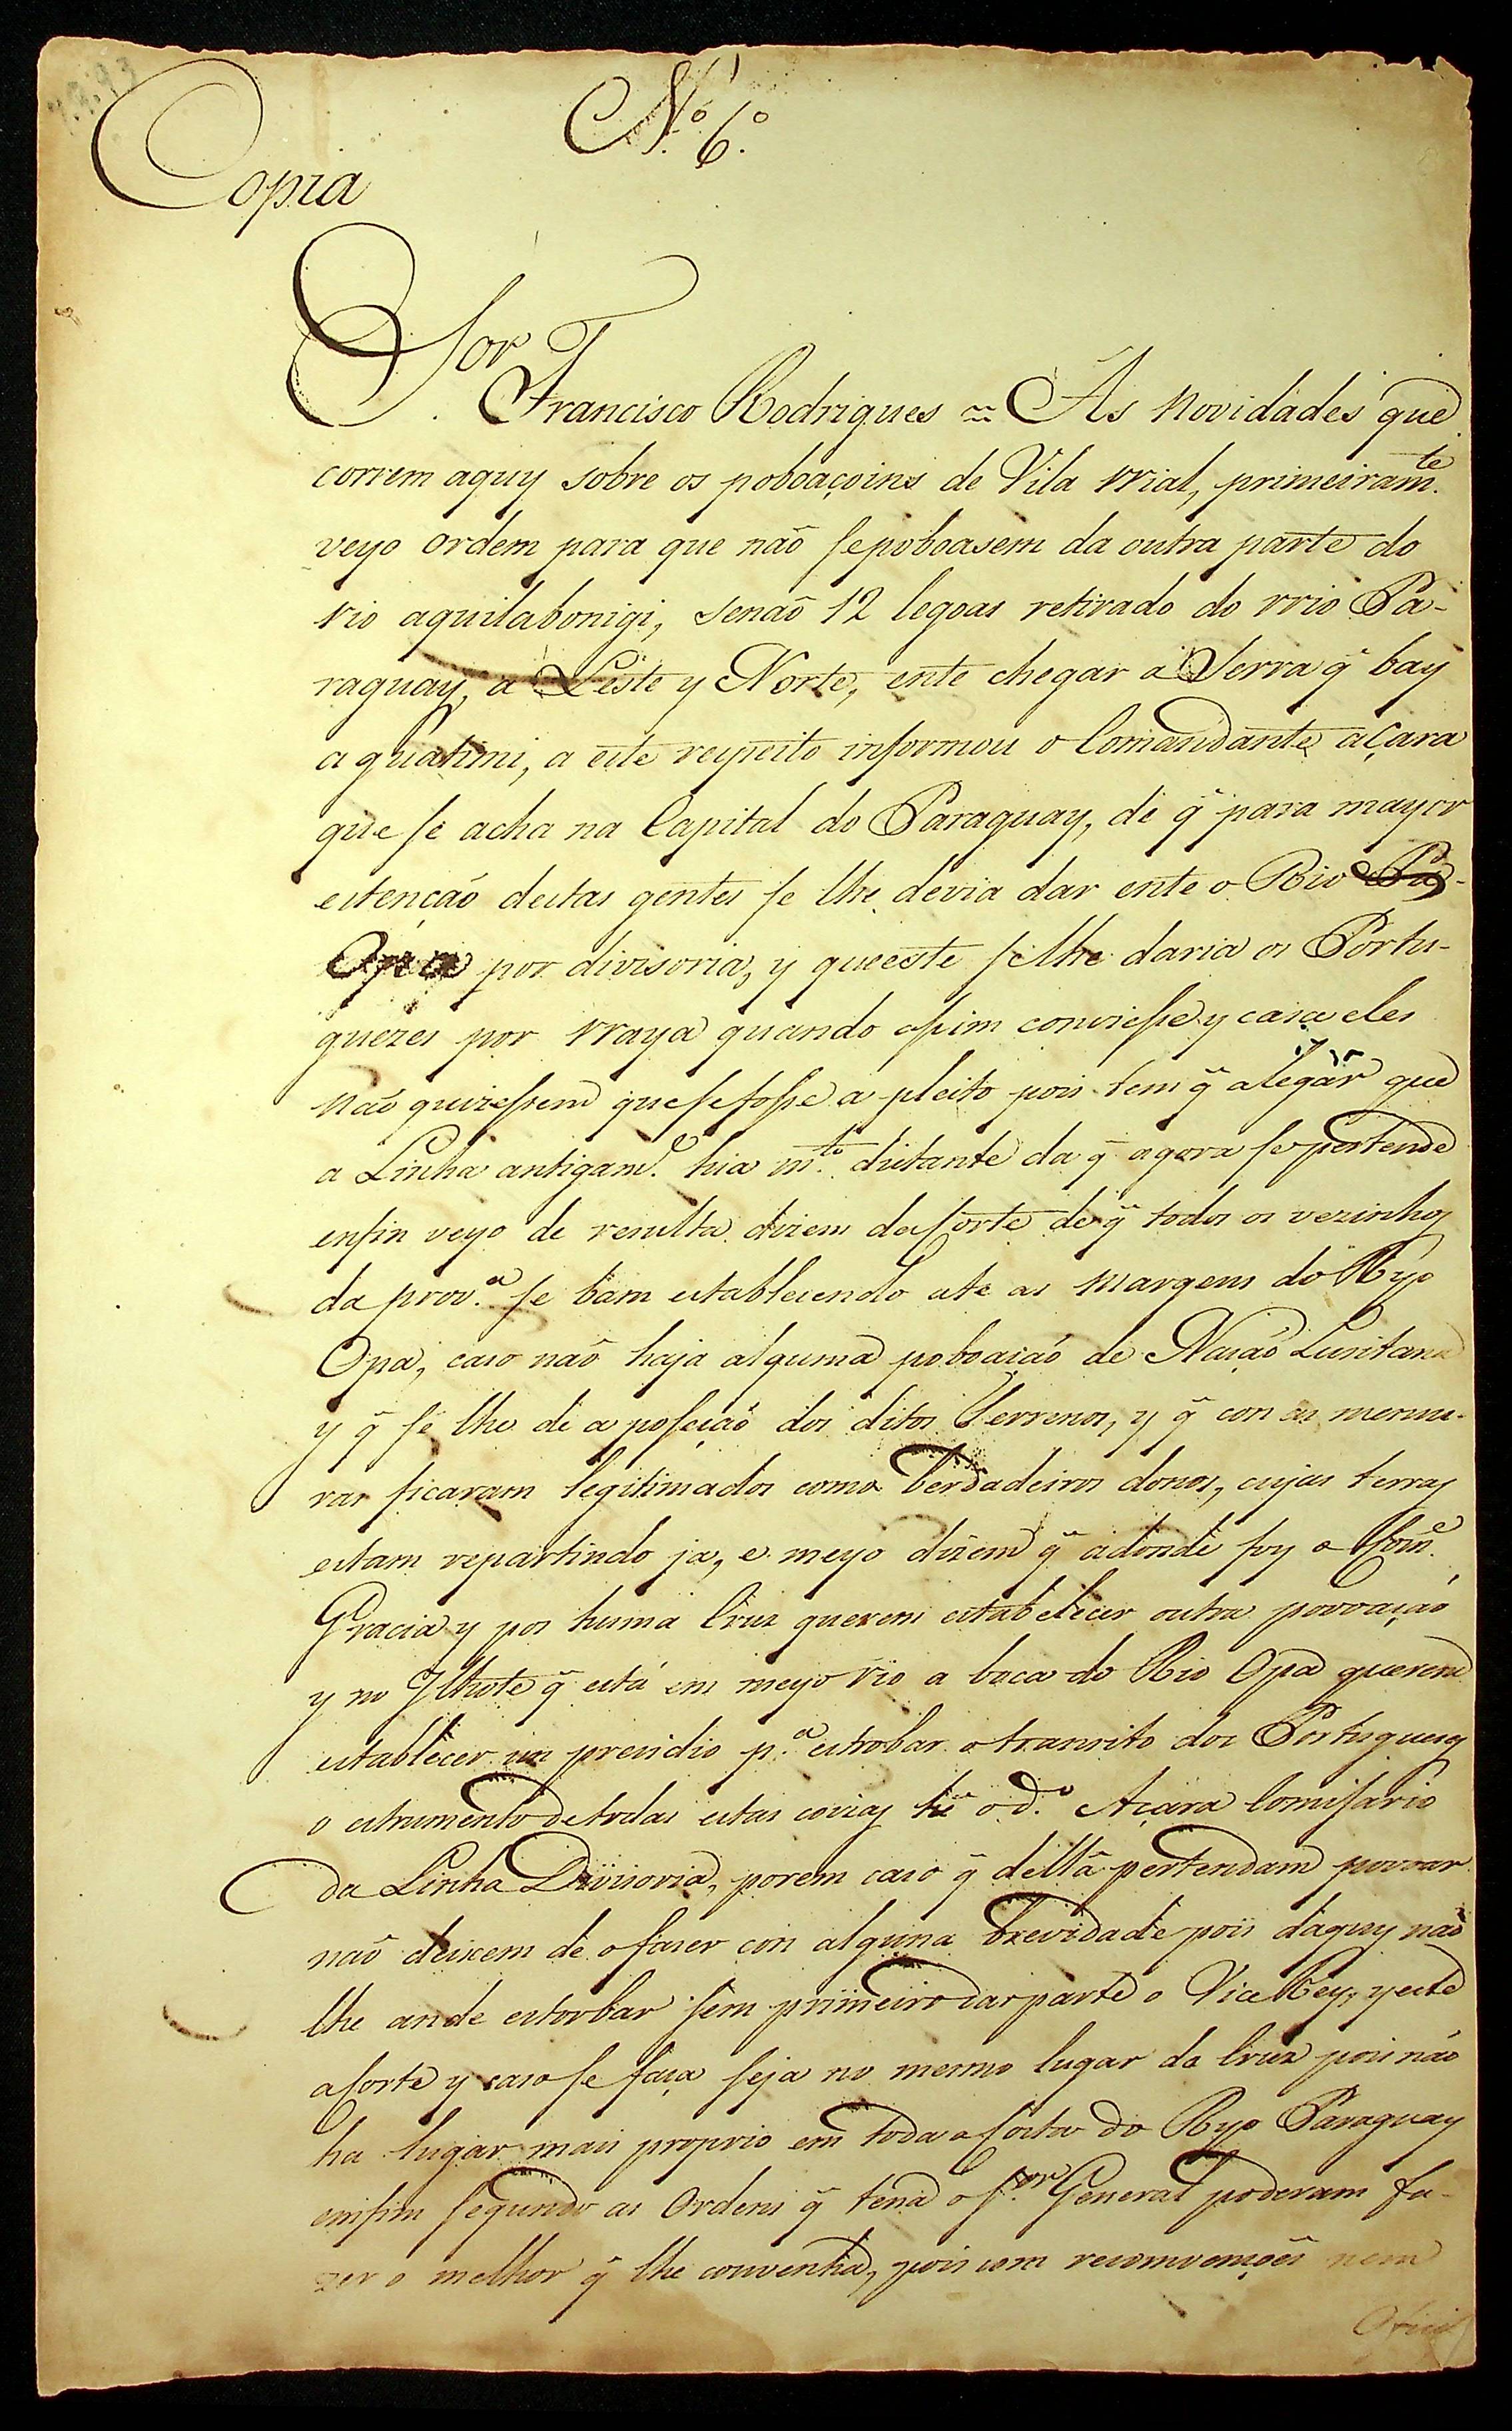 N.º 6.º
Copia
S.or
Francisco Rodrigues = As novidades que
correm aquy sobre os poboaçoins de Vila rrial, primeiram.te
veyo ordem para que não se poboasem da outra parte do
rio aquilabonigi, senão 12 legoas retirado do rrio Pa-
raguay, a Leste y Norte, ente chegar a Serra q̃ bay
a guatimi, a este respeito informou o Comandante açara
que se acha na Capital do Paraguay, de q̃ para mayor
estenção destas gentes se lhe devia dar ente o Rio
Opa por divisoria, y que este se lhe daria os Portu-
guezes por rraya quando asim conviesse y casa eles
não quizessem que se fosse a pleito pois tem q̃ alegar que
a Linha antigam.e hia m.to distante da q̃ agora se pertende
enfin veyo de resulta dizem da sorte de q̃ todos os vezinhos
da prov.a se bam establesendo ate as margens do Ryo
Opa, caso não haja alguma poboasaó de Nasaõ Lusitana
y q̃ se lhe de a poseçaõ dos ditos terrenos, y q̃ con as mensu-
ras ficaram legitimados como berdadeiros donos, cujas terras
estam repartindo ja, e meyo dizem q̃ adonde foy o
Gracia y pos huma Cruz querem estabelecer outra povoaçaõ
y no Ilhote q̃ está em meyo rio a boca do Rio Opa querem
establecer un presidio p.a estrobar o transito dos Portuguesg
o estrumento de todas estas coizas he o d.o Açara Comisario
da Linha Divisoria, porem caso q̃ della pertendam povoar
não deixem de o faser con alguna brevidade pois daquy não
lhe ande estorbar sem primeiro dar parte o Vice Rey, y este
a Corte y caso se faça seja no mesmo lugar da Cruz pois não
ha lugar mais proprio em toda a Costa do Ryo Paraguay
emfim segundo as Ordens q̃ tena o S.or General poderam fa-
zer o melhor q̃ lhe convenha, pois com reconvençoẽs nem